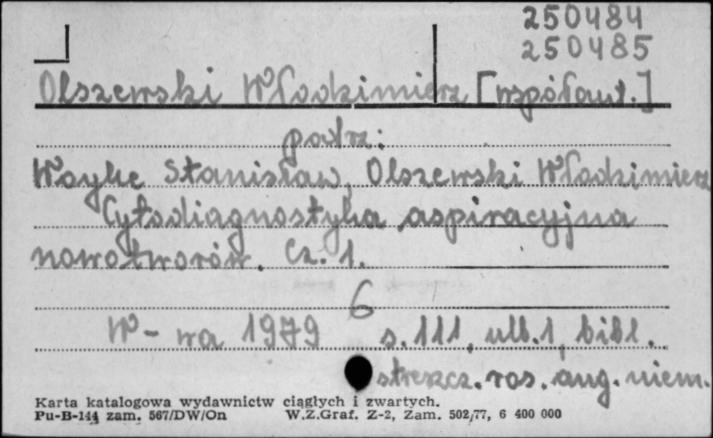 250484
250485
Olszewski Włodzimierz [współaut.]
podrz:
Woyke Stanisław, Olszewski Włodzimierz
Cytodiagnostyka aspiracyjna
nowotworów. Cz. 1.
6
W-wa 1979 s. 111, ulb. 1, bibl.
streszcz. ros. ang. niem.
Karta katalogowa wydawnictw ciągłych i zwartych.
Pu-B-144 zam. 567/DW/On W.Z.Graf. Z-2, Zam. 502/77, 6 400 000